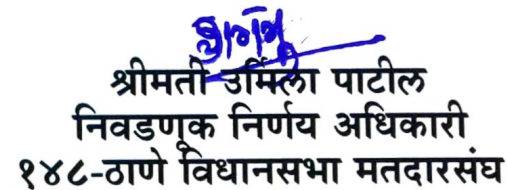 श्रीमती उर्मिला पाटील
निवडणूक निर्णय अधिकारी
१४८-ठाणे विधानसभा मतदारसंघ